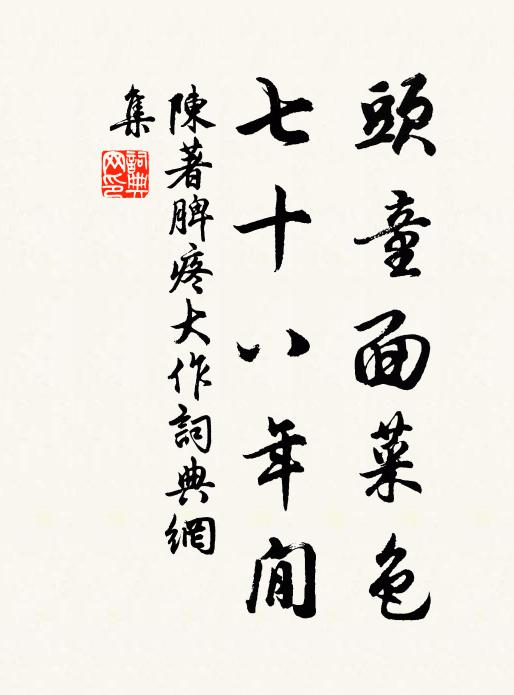 頭童面菜色
七十八年間
陳著脾疼大作詞典網
集
詞典网印